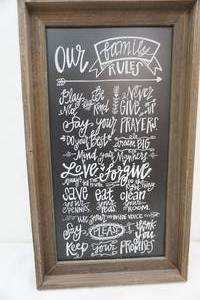 Our family
RULES
Play Nice
Be Kind
Never GIVE UP
Say your PRAYERS
Do your Best
DREAM BIG
Mind your Manners
Love & Forgive
save your PENNIES
eat
clean your ROOM
use your INSIDE VOICE
Say PLEASE & thank you
Keep your PROMISES